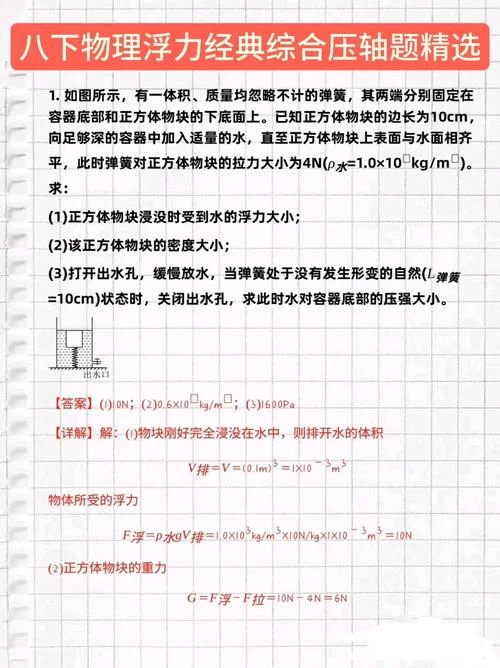 八下物理浮力经典综合压轴题精选
1. 如图所示，有一体积、质量均忽略不计的弹簧，其两端分别固定在
容器底部和正方体物块的下底面上。已知正方体物块的边长为10cm，
向足够深的容器中加入适量的水，直至正方体物块上表面与水面相齐
平，此时弹簧对正方体物块的拉力大小为4N(ρ水=1.0×10□kg/m□)。
求：
(1)正方体物块浸没时受到水的浮力大小；
(2)该正方体物块的密度大小；
(3)打开出水孔，缓慢放水，当弹簧处于没有发生形变的自然(L弹簧
=10cm)状态时，关闭出水孔，求此时水对容器底部的压强大小。
出水口
【答案】(1)10N；(2)0.6X10□kg/m□；(3)1600Pa
【详解】解：(1)物块刚好完全浸没在水中，则排开水的体积
V排=V=(0.1m)³=1X10⁻³m³
物体所受的浮力
F浮=ρ水gV排=1.0X10³kg/m³X10N/kgX1X10⁻³m³=10N
(2)正方体物块的重力
G=F浮-F拉=10N-4N=6N